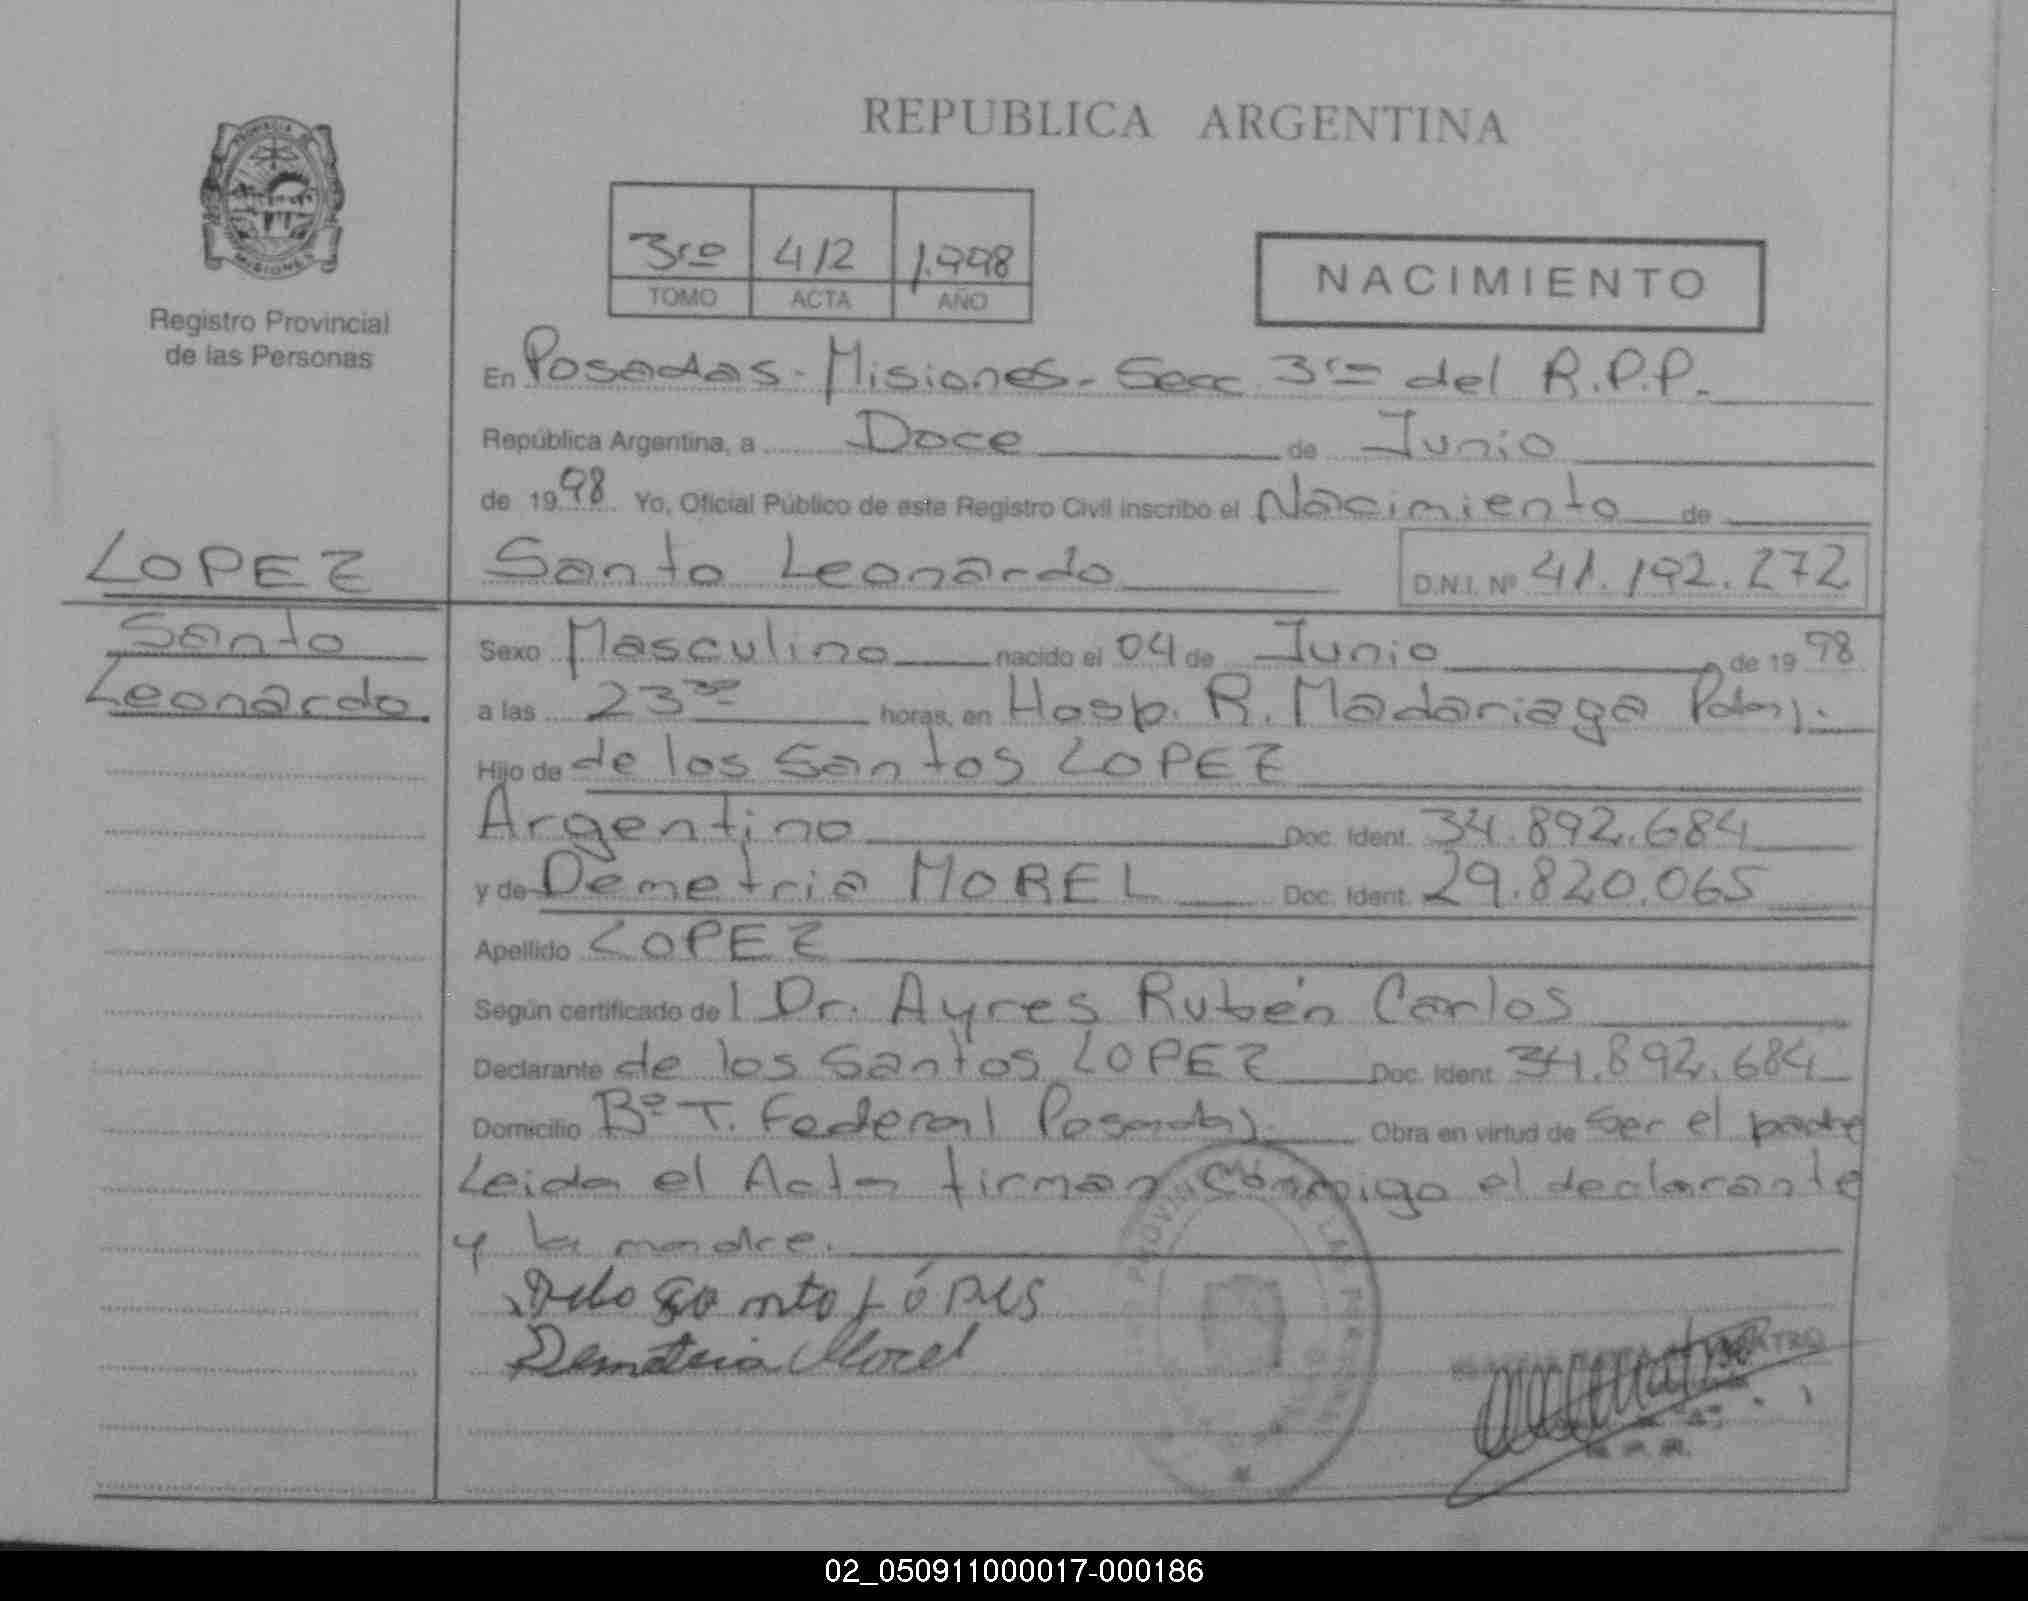 REPUBLICA ARGENTINA
PROVINCIA DE
MISIONES
Registro Provincial
de las Personas
3ro 412 1.998
TOMO ACTA AÑO
NACIMIENTO
En Posadas - Misiones - Secc. 3ra del R.P.P.
República Argentina, a Doce de Junio
de 1998 Yo, Oficial Público de este Registro Civil inscribo el Nacimiento de
LOPEZ
Santo
Leonardo.
Santo Leonardo D.N.I. Nº 41.192.272
Sexo Masculino nacido el 04 de Junio de 1998
a las 23 30 horas, en Hosp. R. Madariaga Pdas.
Hijo de de los Santos LOPEZ
Argentino Doc. Ident. 34.892.684
y de Demetria MOREL Doc. Ident. 29.820.065
Apellido LOPEZ
Según certificado de l Dr. Ayres Rubén Carlos
Declarante de los Santos LOPEZ Doc. Ident. 34.892.684
Domicilio Bº T. Federal Posadas. Obra en virtud de ser el padre
Leida el Acta firman conmigo el declarante
y la madre.
Demetria Morel
02_050911000017-000186